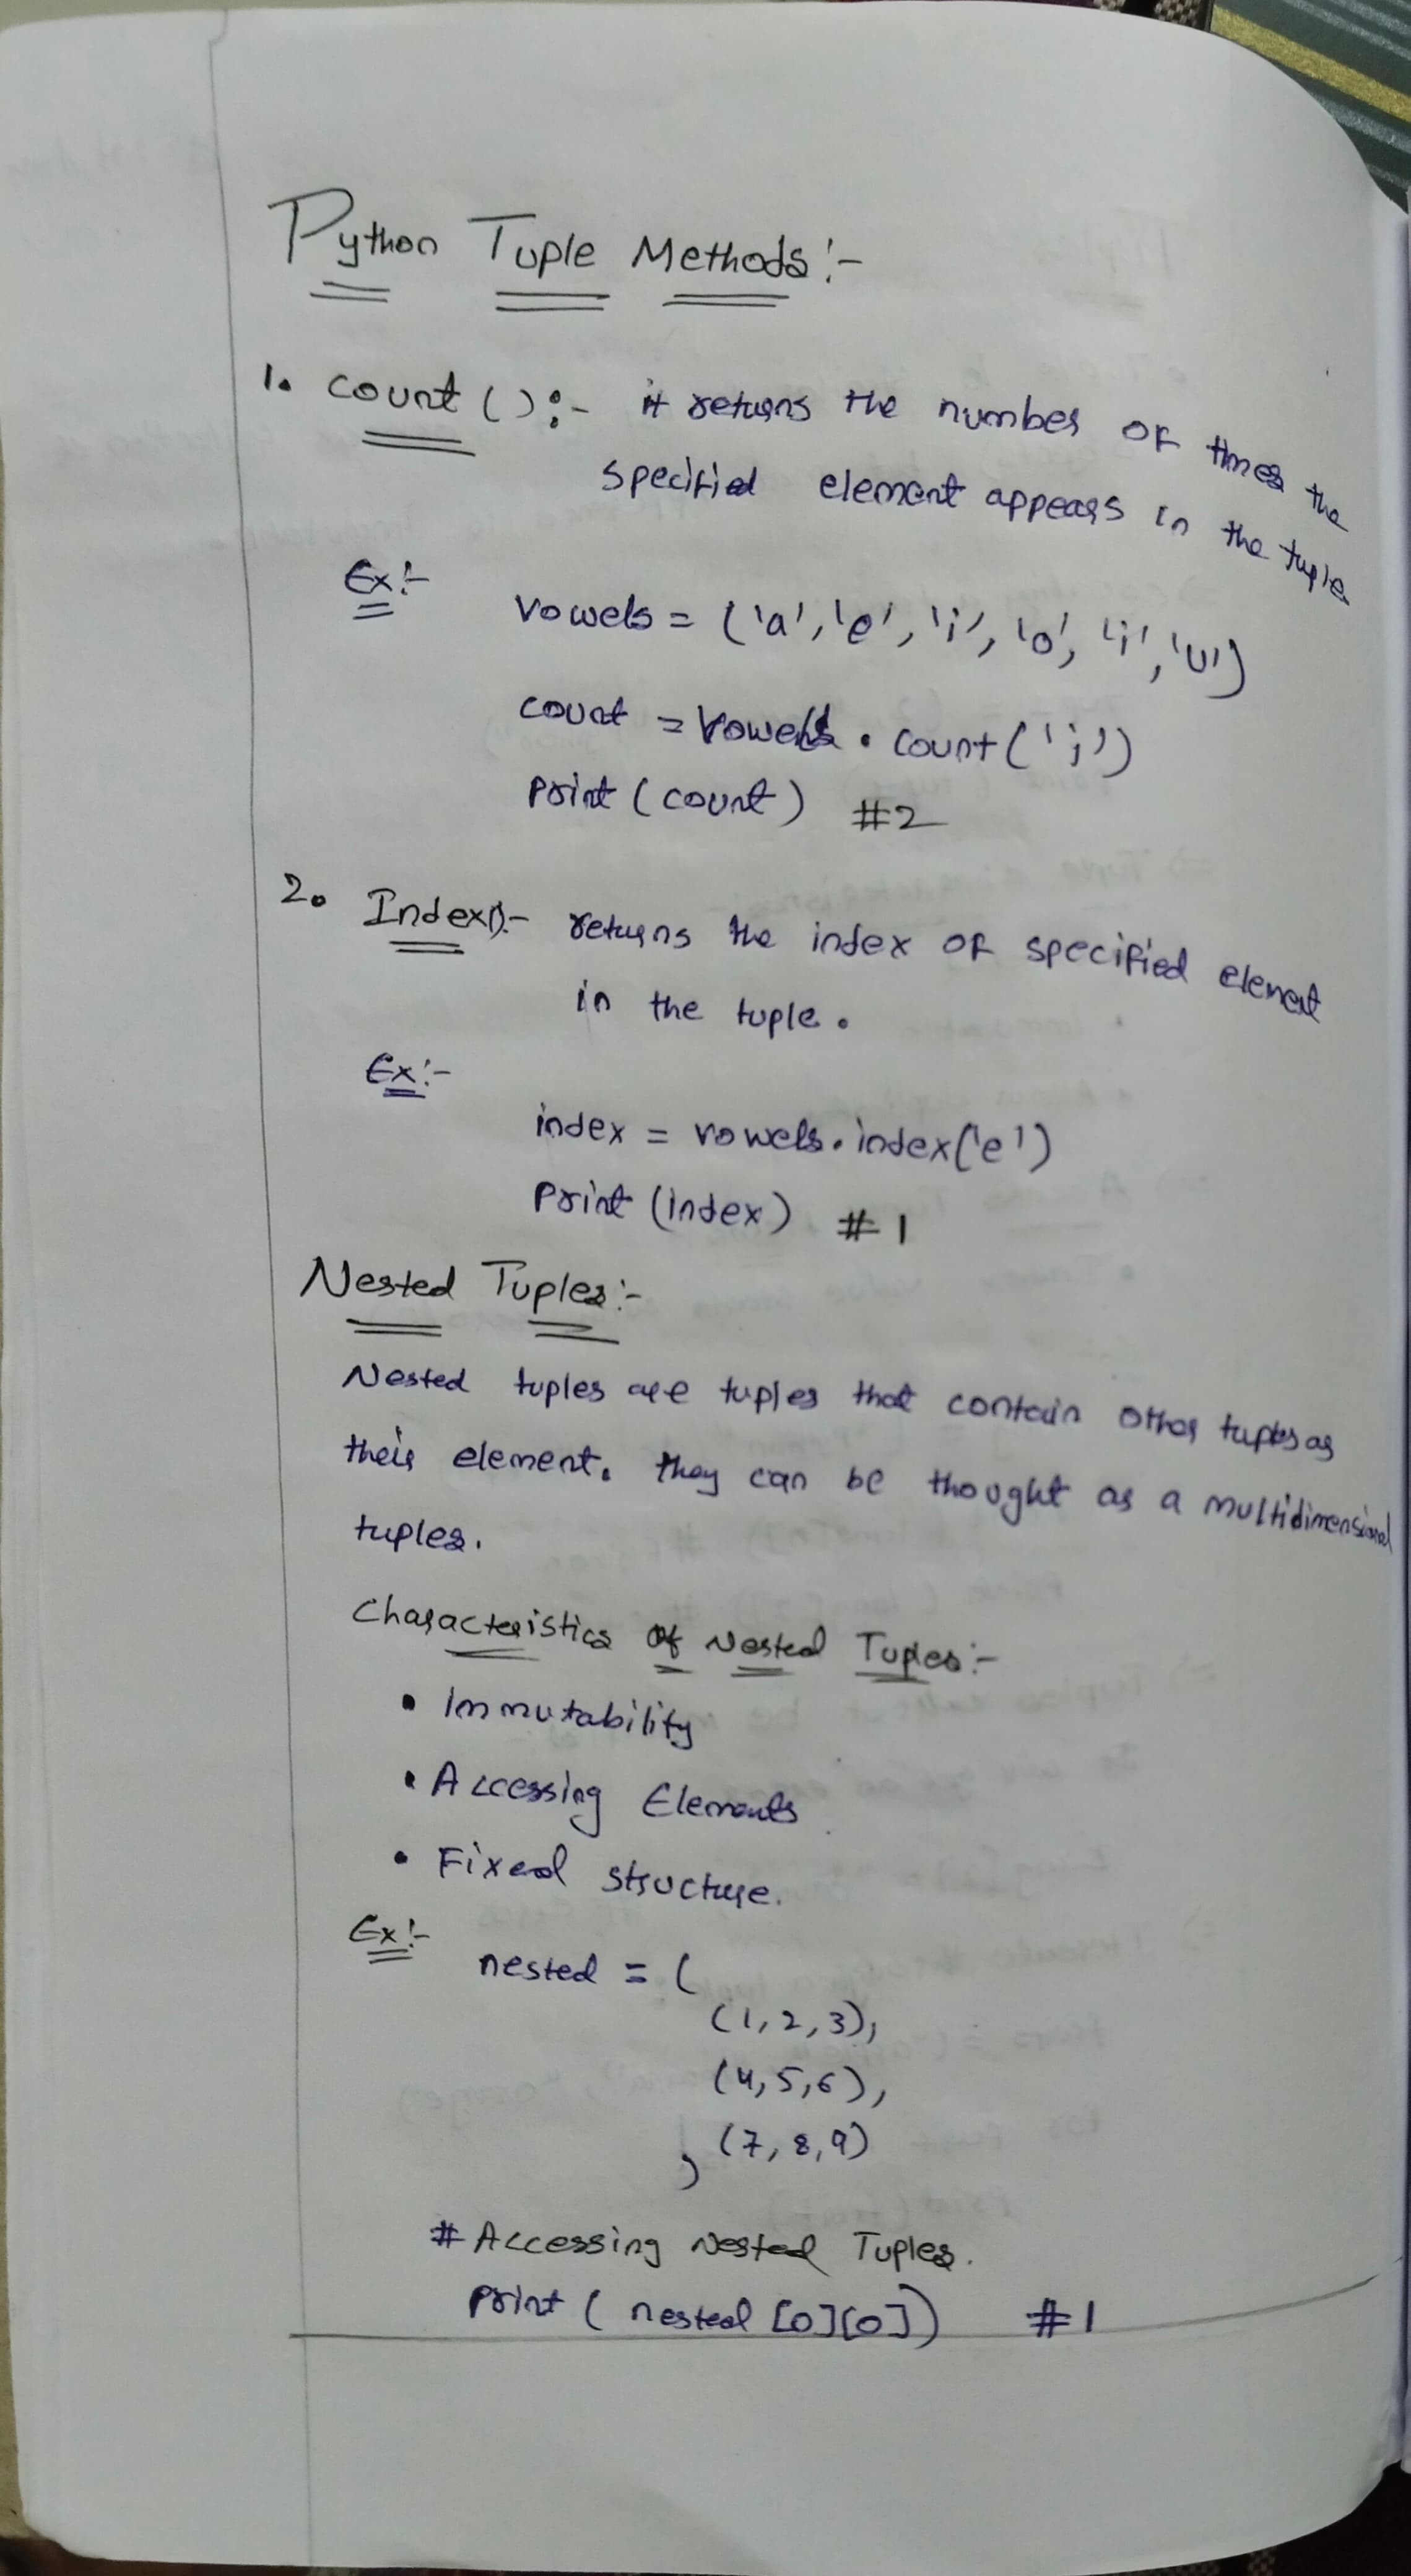 Python Tuple Methods:-
1. count():- it returns the number of times the
specified element appears in the tuple
Ex:-
vowels = ('a', 'e', 'i', 'o', 'i', 'u')
count = vowels.count('i')
print(count) #2
2. Index():- returns the index of specified element
in the tuple.
Ex:-
index = vowels.index('e')
print(index) #1
Nested Tuples:-
Nested tuples are tuples that contain other tuples as
their element. they can be thought as a multidimensional
tuples.
Characteristics of Nested Tuples:-
• Immutability
• Accessing Elements
• Fixed structure.
Ex:-
nested = (
(1, 2, 3),
(4, 5, 6),
(7, 8, 9)
)
# Accessing Nested Tuples.
print(nested[0][0]) #1